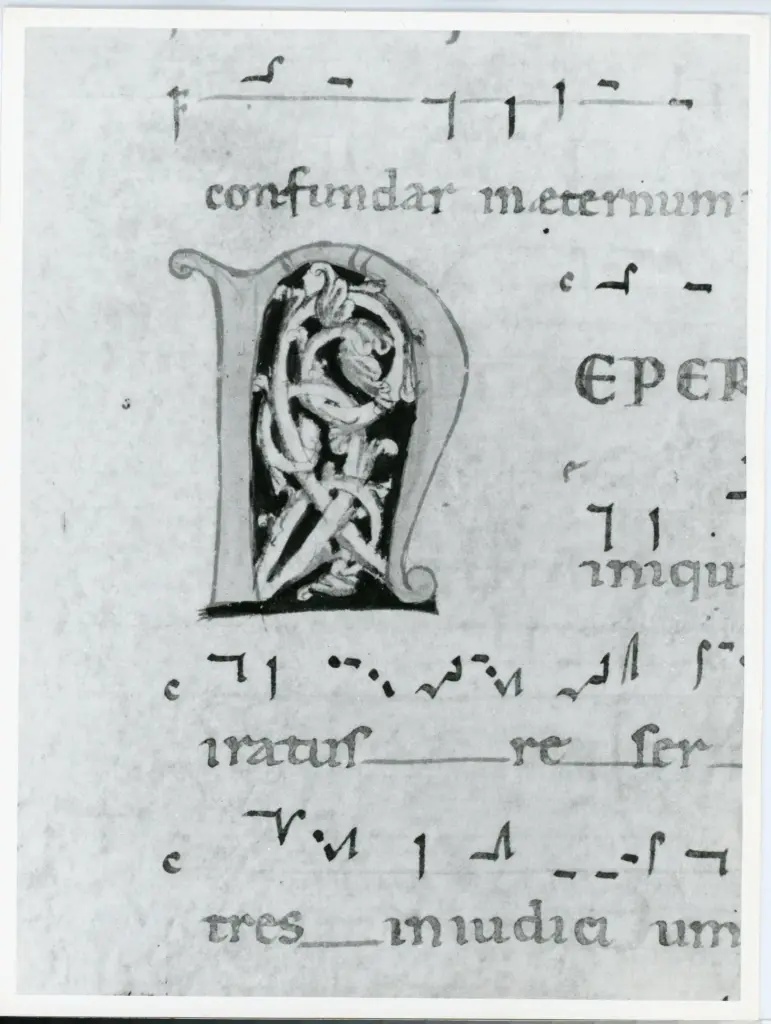 confundar in æternum
N EPER
iniqu
iratus re ser
tres in iudici um